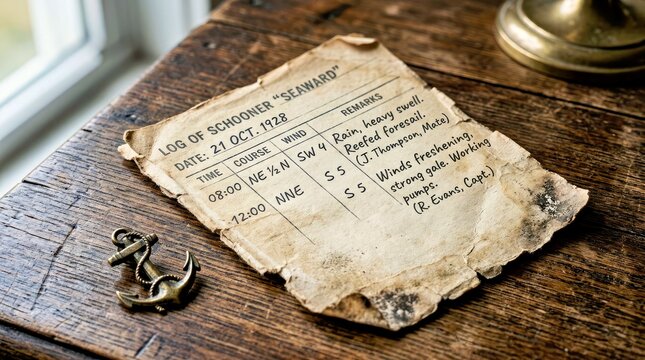 LOG OF SCHOONER "SEAWARD"
DATE: 21 OCT. 1928
TIME COURSE WIND REMARKS
08:00 NE ½ N SW 4 Rain, heavy swell.
Reefed foresail.
(J. Thompson, Mate)
12:00 NNE S 5 Winds freshening,
S 5 strong gale. Working
pumps.
(R. Evans, Capt.)